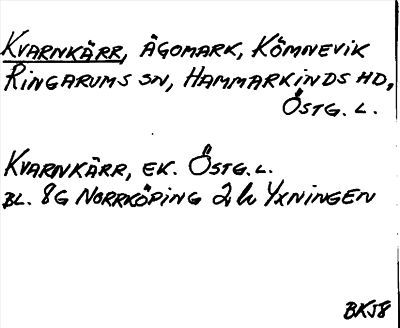 KVARNKÄRR, ÄGOMARK, KÖMNEVIK
RINGARUMS SN, HAMMARKINDS HD,
ÖSTG. L.
KVARNKÄRR, EK. ÖSTG. L.
BL. 8G NORRKÖPING 2h YXNINGEN
BKJ8